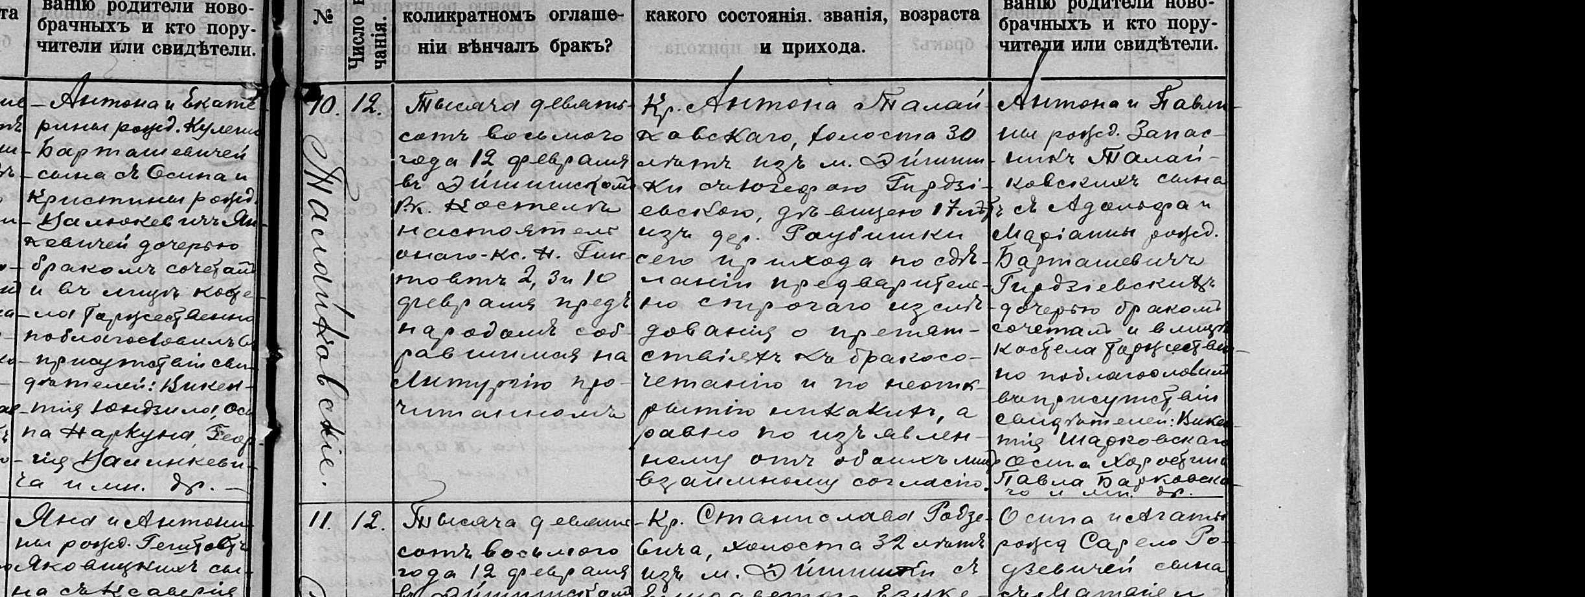 ванію родители ново-
брачныхъ и кто пору-
чители или свидѣтели.
Антона и Екате
рины рожд. Кулеш
Барташевичей
сына съ Осипа и
Кристины рожд.
Валюкевичъ Ян
кевичей дочерью
бракомъ сочеталъ
и въ лицѣ косте
ла торжественно
поблагословилъ въ
присутствіи сви
дѣтелей: Викен-
тія Юндзила, Оси
па Наркуна, Геор
гія Валинкеви-
ча и мн. др.
Яна и Антони
ны рожд.
Яковицкихъ сы-
на съ Ксаверія
№
Число вѣн
чанія.
коликратномъ оглаше-
ніи вѣнчалъ бракъ?
какого состоянія. званія, возраста
и прихода.
ванію родители ново-
брачныхъ и кто пору-
чители или свидѣтели.
10. 12.
Талайковскіе.
Тысяча девять-
сотъ восьмого
года 12 февраля
въ Эйшишскомъ
Р.к. Костелѣ
настоятель
онаго кс. Н. Гин
товтъ 2, 3 и 10
февраля предъ
народомъ соб-
равшимся на
Литургію про-
читанномъ
Кр. Антона Талай
ковскаго, холоста 30
лѣтъ изъ м. Эйшиш
ки съ Юзефою Гирдзі-
евскою, дѣвицею 17 лѣтъ
изъ дер. Раубишки
сего прихода по сдѣ-
ланіи предваритель-
но строгаго изслѣ-
дованія о препят-
ствіяхъ къ бракосо-
четанію и по неотк-
рытію никакихъ, а
равно по изъявлен-
ному отъ обоихъ лицъ
взаимному согласію.
Антона и Павли
ны рожд. Запас-
никъ Талай-
ковскихъ сына
съ Адольфа и
Маріанны рожд.
Барташевичъ
Гирдзіевскихъ
дочерью бракомъ
сочеталъ и в лицѣ
костела торжествен
но поблагословилъ
въ присутствіи
свидѣтелей: Викен
тія Шарковскаго
Осипа
Павла Барковска-
го и мн. др.
11. 12.
Тысяча девять-
сотъ восьмого
года 12 февраля
въ Эйшишскомъ
Кр. Станислава Родзе-
вича, холоста 32 лѣтъ
изъ м. Эйшишки съ
Осипа и Агаты
рожд. Ро-
дзевичей сына